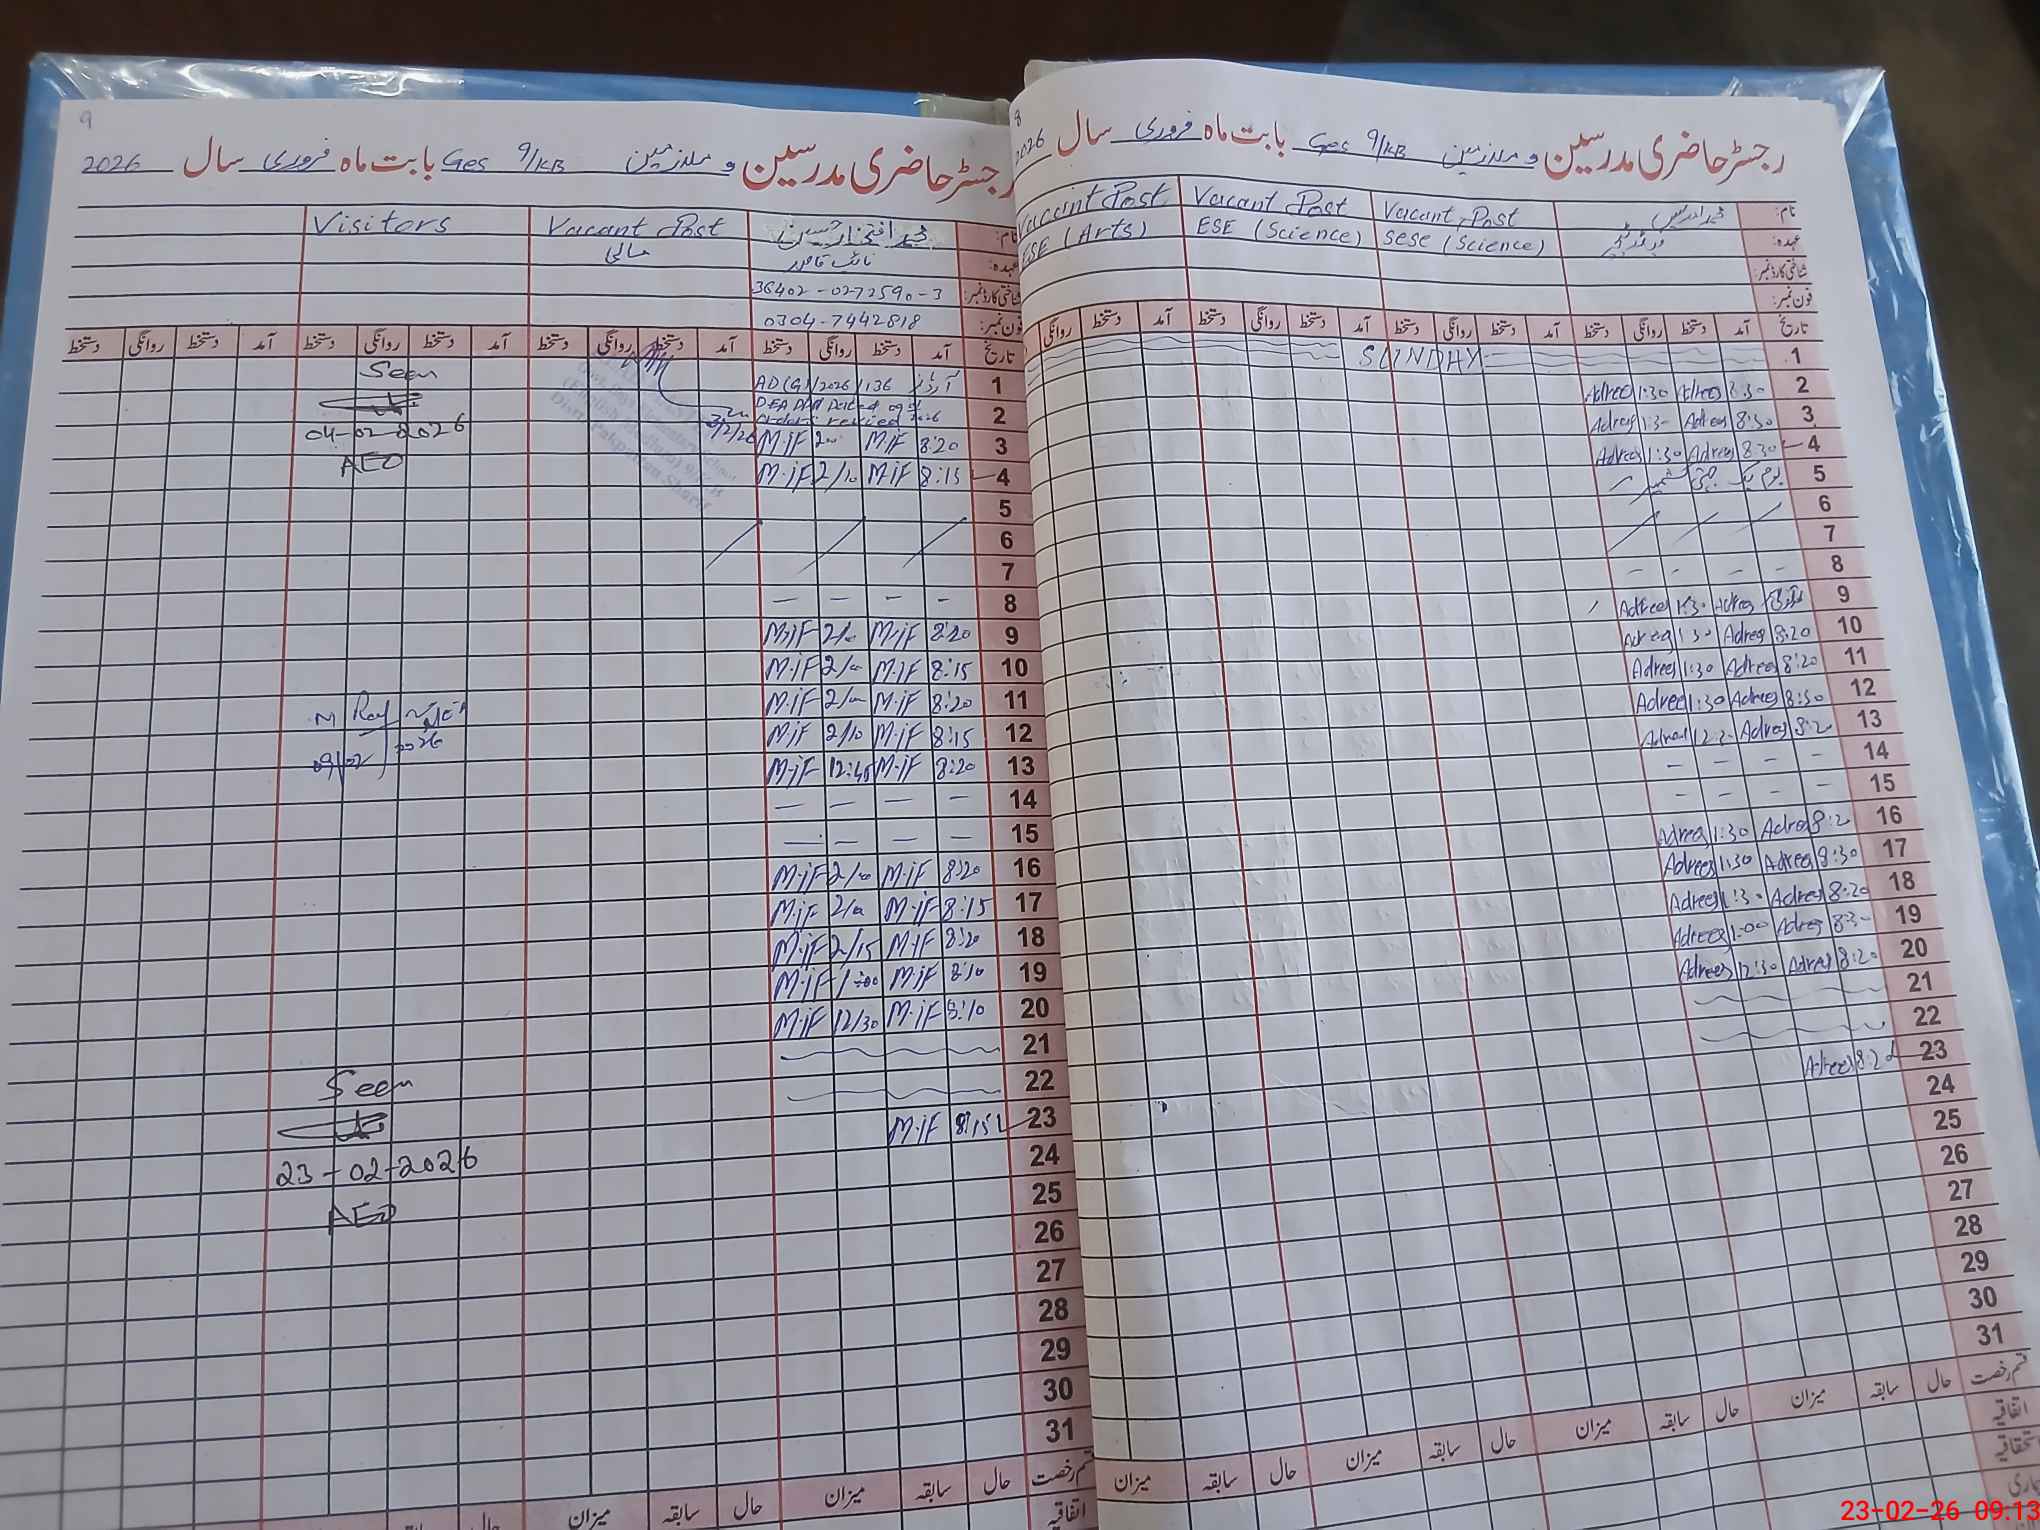 9
رجسٹر حاضری مدرسین و ملازمین Ges 9/KB بابت ماہ فروری سال 2026
نام: محمد افتخار حسین Vacant Post Visitors
عہدہ: مالی
شناختی کارڈ نمبر: 36402-0272590-3
فون نمبر: 0304-7442818
تاریخ آمد دستخط روانگی دستخط آمد دستخط روانگی دستخط آمد دستخط روانگی دستخط آمد دستخط روانگی دستخط
1 آرڈر AD(G)/2026/136 Seen
2
3 8:20 M.iF M.iF 04-02-2026
4 8:15 M.iF 2/10 M.iF AEO
5
6
7
8 — — — —
9 8:20 M.iF 2/00 M.iF
10 8:15 M.iF 2/00 M.iF
11 8:20 M.iF 2/00 M.iF
12 8:15 M.iF 2/10 M.iF 09/02/2026
13 8:20 M.iF 12:45 M.iF
14 — — — —
15 — — — —
16 8:20 M.iF 2/00 M.iF
17 8:15 M.iF 2/00 M.iF
18 8:20 M.iF 2/15 M.iF
19 8:10 M.iF 1:00 M.iF
20 8:10 M.iF 12/30 M.iF
21
22 Seen
23 8:15 M.iF
24 23-02-2026
25 AEO
26
27
28
29
30
31
قسم رخصت حال سابقہ میزان حال سابقہ میزان حال سابقہ
اتفاقیہ
8
رجسٹر حاضری مدرسین و ملازمین Ges 9/KB بابت ماہ فروری سال 2026
نام: محمد ادریس Vacant Post Vacant Post Vacant Post
عہدہ: SESE (Science) ESE (Science) ESE (Arts)
شناختی کارڈ نمبر:
فون نمبر:
تاریخ آمد دستخط روانگی دستخط آمد دستخط روانگی دستخط آمد دستخط روانگی دستخط آمد دستخط روانگی
1 SUNDAY
2 8:30 Adrees 1:30 Adrees
3 8:30 Adrees 1:3- Adrees
4 8:30 Adrees 1:30 Adrees
5 یوم یک جہتی کشمیر
6
7
8 — — — —
9 Adrees 1:30 Adrees
10 8:20 Adrees 1:30 Adrees
11 8:20 Adrees 1:30 Adrees
12 8:30 Adrees 1:30 Adrees
13 8:20 Adrees Adrees
14 — — — —
15 — — — —
16 8:20 Adrees 1:30 Adrees
17 8:30 Adrees 1:30 Adrees
18 8:20 Adrees 1:30 Adrees
19 8:30 Adrees 1:00 Adrees
20 8:20 Adrees 12:30 Adrees
21
22
23 8:20 Adrees
24
25
26
27
28
29
30
31
قسم رخصت حال سابقہ میزان حال سابقہ میزان حال سابقہ میزان حال سابقہ میزان
اتفاقیہ
استحقاقیہ
23-02-26 09:13